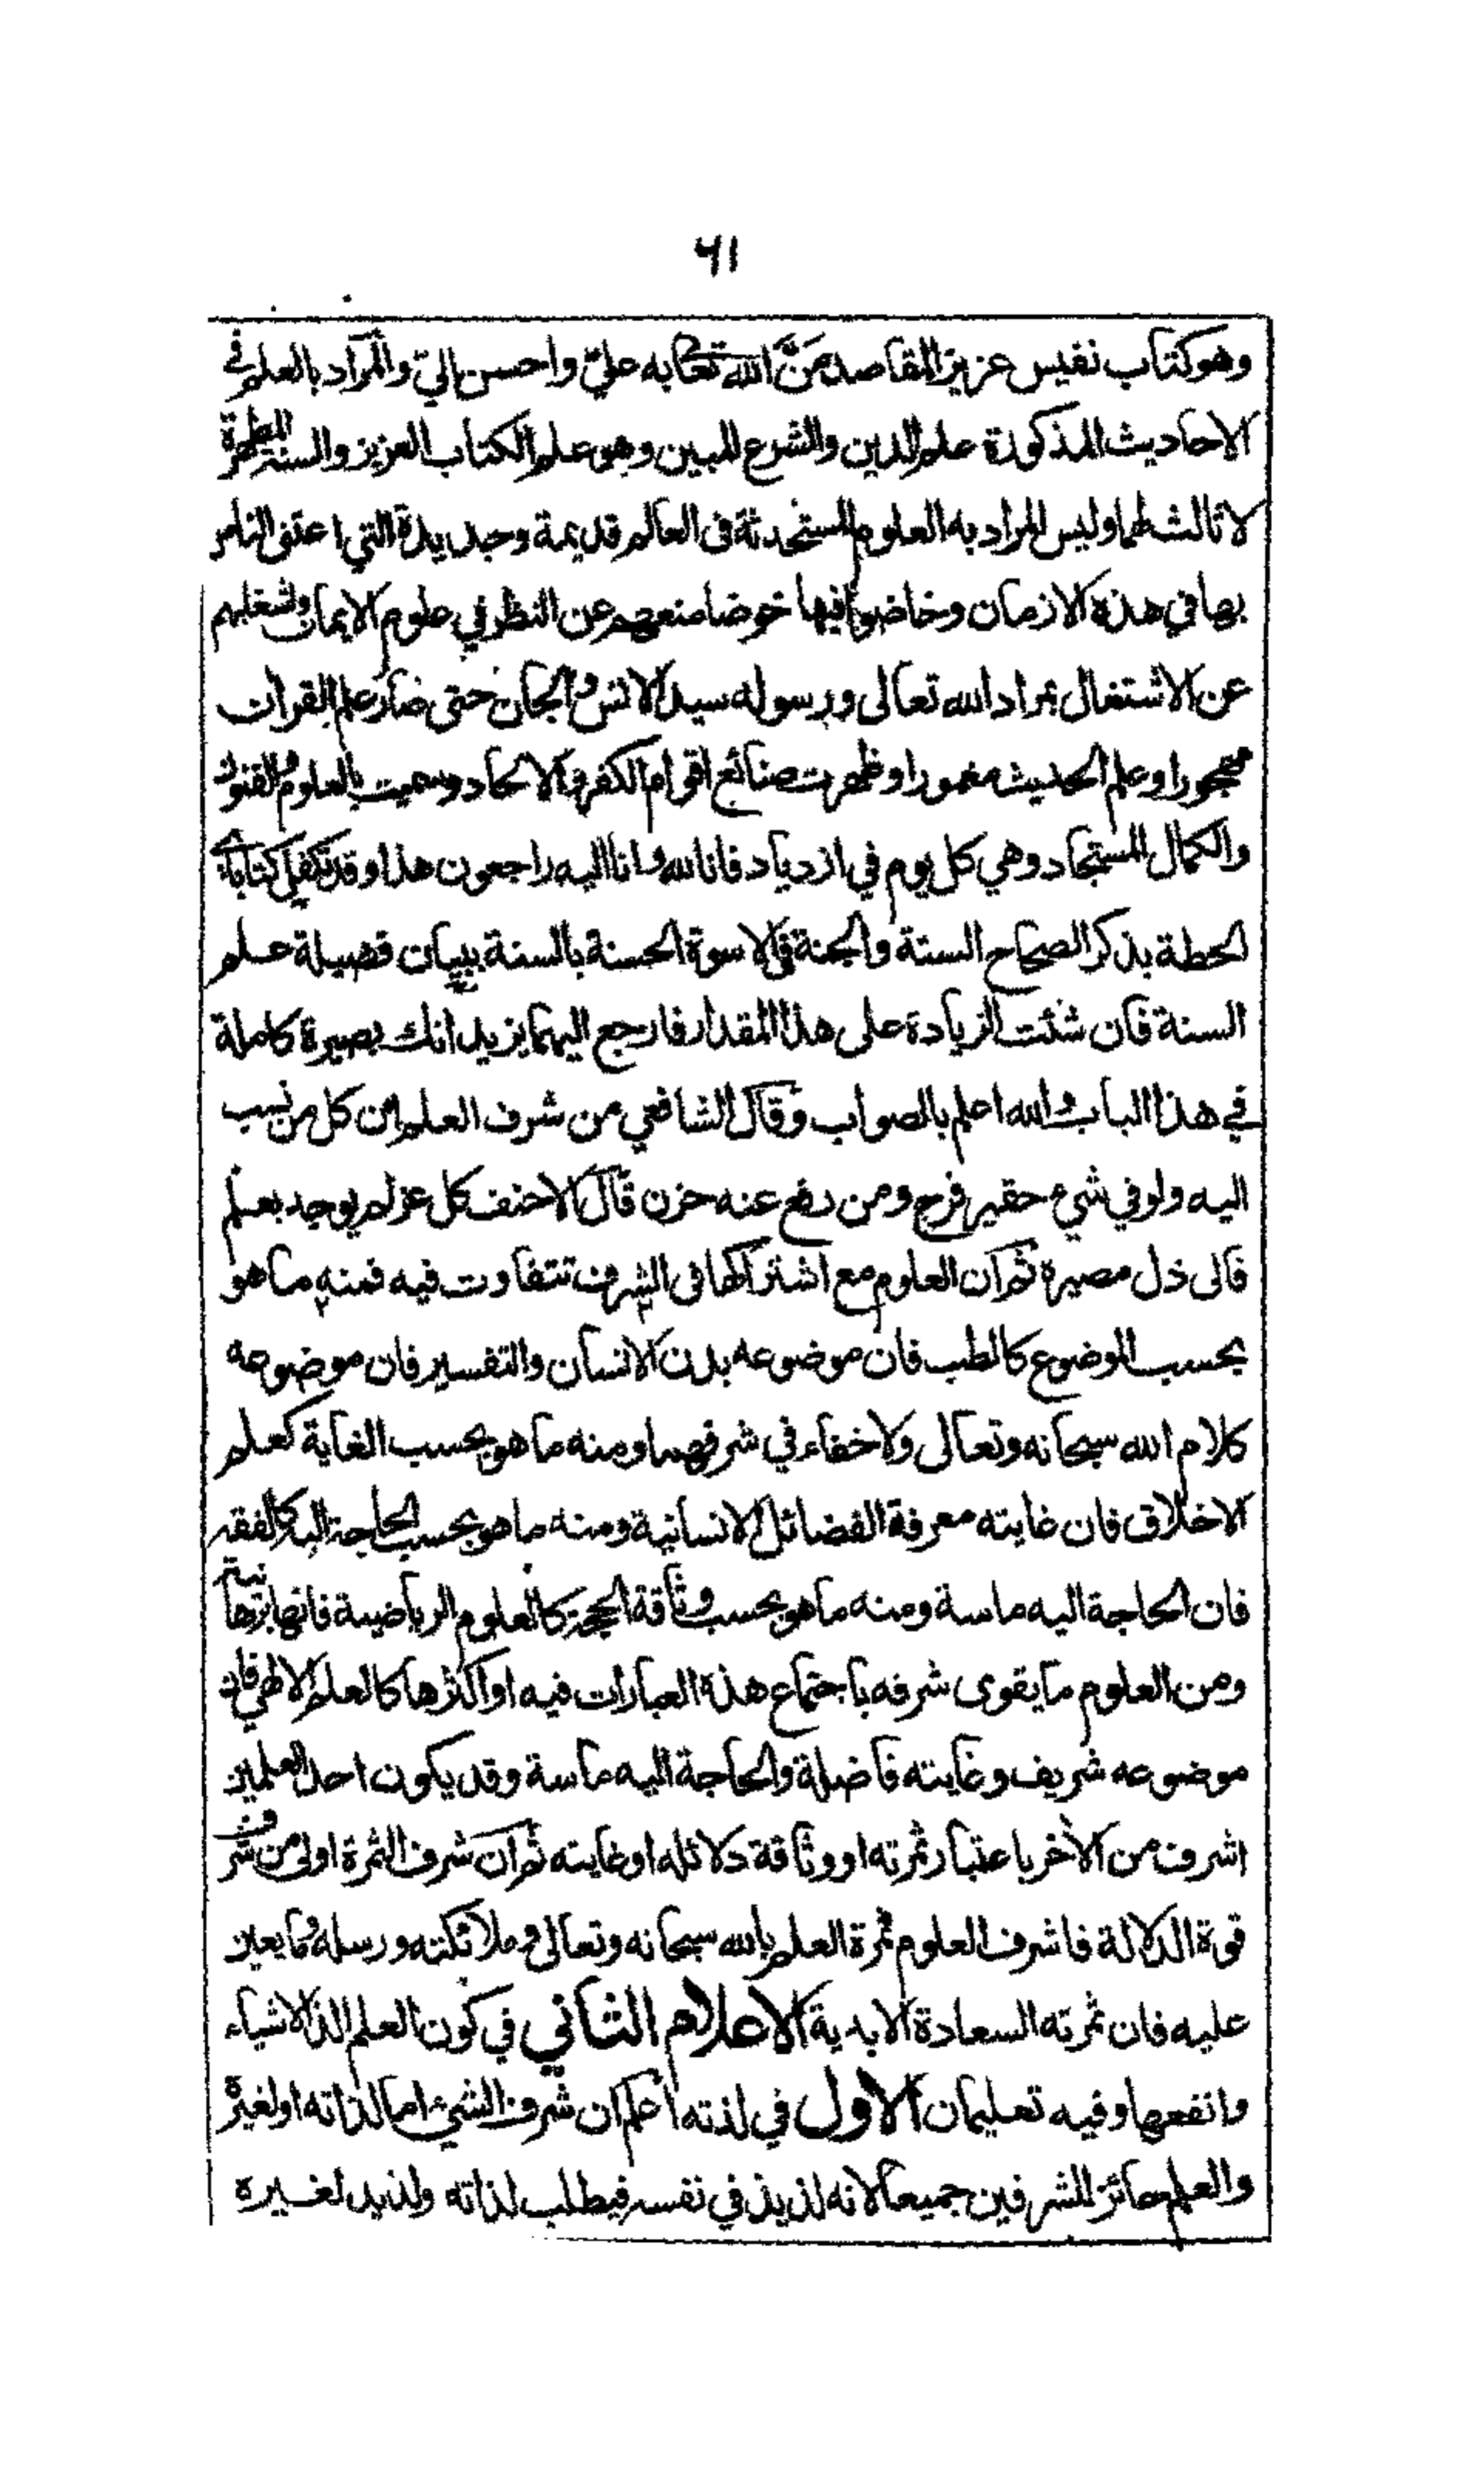 ٦١
وهو كتاب نفيس عزيز المقاصد مَنَّ الله تعا به علي واحسن الي والمراد بالعلم في
الاحاديث المذكورة علم الدين والشرع المبين وهو علم الكتاب العزيز والسنة المطهرة
لا ثالث لهما وليس المراد به العلوم المستحدثة في العالم قديمة وجديدة التي اعتنى الناس
بها في هذه الازمان وخاضوا فيها خوضا منعهم عن النظر في علوم الايمان واشغلهم
عن الاشتغال بمراد الله تعالى ورسوله سيد الانس والجان حتى صار علم القران
مهجورا وعلم الحديث مغمورا وظهرت صنائع اقوام الكفر والالحاد وسميت بالعلوم والفنون
والكمال المستجاد وهي كل يوم في ازدياد فانا لله وانا اليه راجعون هذا وقد تكفل كتاباي
الحطة بذكر الصحاح الستة والجنة في الاسوة الحسنة بالسنة ببيان فضيلة علم
السنة فان شئت الزيادة على هذا المقدار فارجع اليهما يزيدانك بصيرة كاملة
في هذا الباب والله اعلم بالصواب وقال الشافعي من شرف العلم ان كل من نسب
اليه ولو في شيء حقير فرح ومن دفع عنه حزن قال الاحنف كل عز لم يوجد بعلم
فالى ذل مصيره ثم ان العلوم مع اشتراكها في الشرف تتفاوت فيه فمنه ما هو
بحسب الموضوع كالطب فان موضوعه بدن الانسان والتفسير فان موضوعه
كلام الله سبحانه وتعالى ولا خفاء في شرفهما ومنه ما هو بحسب الغاية كعلم
الاخلاق فان غايته معرفة الفضائل الانسانية ومنه ما هو بحسب الحاجة اليه كالفقه
فان الحاجة اليه ماسة ومنه ما هو بحسب وثاقة الحجج كالعلوم الرياضية فانها برهانية
ومن العلوم ما يقوى شرفه باجتماع هذه العبارات فيه او اكثرها كالعلم الالهي فان
موضوعه شريف وغايته فاضلة والحاجة اليه ماسة وقد يكون احد العلمين
اشرف من الآخر باعتبار ثمرته او وثاقة دلائله او غايته ثم ان شرف الثمرة اولى من شرف
قوة الدلالة فاشرف العلوم ثمرة العلم بالله سبحانه وتعالى وملائكته ورسله وما يعين
عليه فان ثمرته السعادة الابدية الاعلام الثاني في كون العلم الذ الاشياء
وانفعها وفيه تعليمان الاول في لذته اعلم ان شرف الشيء اما لذاته او لغيره
والعلم حائز للشرفين جميعا لانه لذيذ في نفسه فيطلب لذاته ولذيذ لغيره